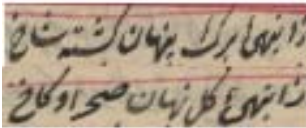 زانبهیٔ برک پنهان کشته شاخ
زانبهیٔ کل نهان صحرا و کاخ